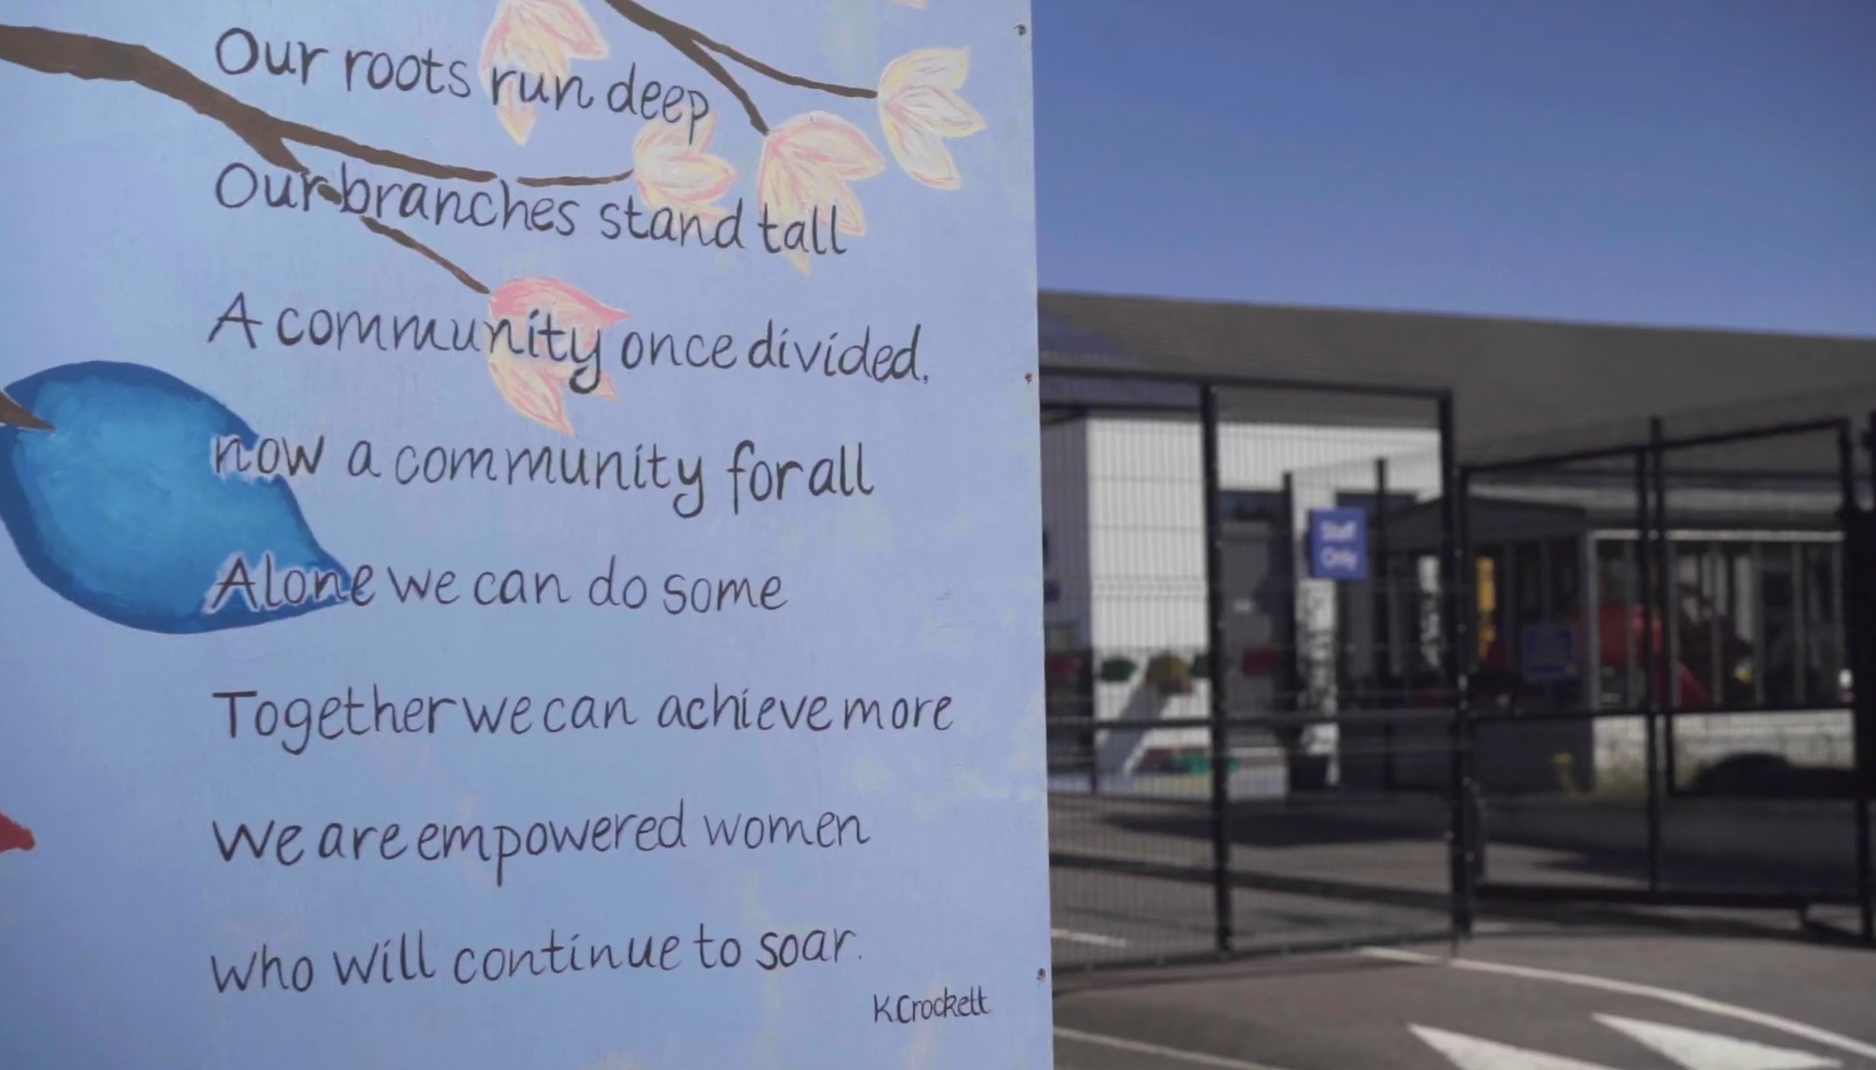 Our roots run deep
Our branches stand tall
A community once divided,
now a community for all
Alone we can do some
Together we can achieve more
We are empowered women
who will continue to soar.
K.Crockett
Staff
Only